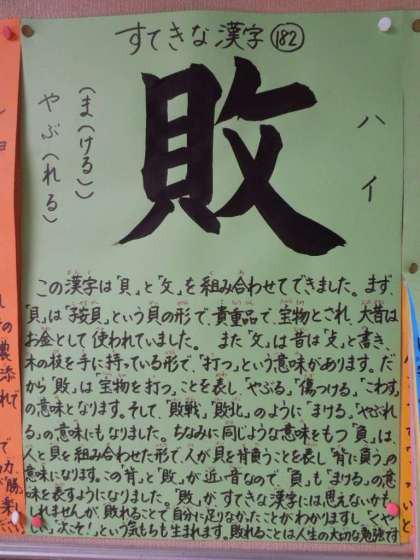 すてきな漢字 182
敗
ハイ
(ま(ける))
やぶ(れる)
この漢字は「貝」と「攵」を組み合わせてできました。まず、
「貝」は「子安貝」という貝の形で、貴重品で、宝物とされ、大昔は
お金として使われていました。また「攵」は昔は「攴」と書き、
木の枝を手に持っている形で、「打つ」という意味があります。だ
から「敗」は宝物を打つことを表し、「やぶる」「傷つける」「こわす」
の意味となります。そして、「敗戦」「敗北」のように「まける」「やぶれ
る」の意味にもなりました。ちなみに同じような意味をもつ「負」は、
人と貝を組み合わせた形で、人が貝を背負うことを表し「背に負う」の
意味になります。この「背」と「敗」が近い音なので、「負」も「まける」の意
味を表すようになりました。「敗」がすてきな漢字には思えないかも
しれませんが、敗れることで自分に足りなかったことがわかりますし「くやし
い」「次こそ!」という気もちも生まれます。敗れることは人生の大切な勉強です